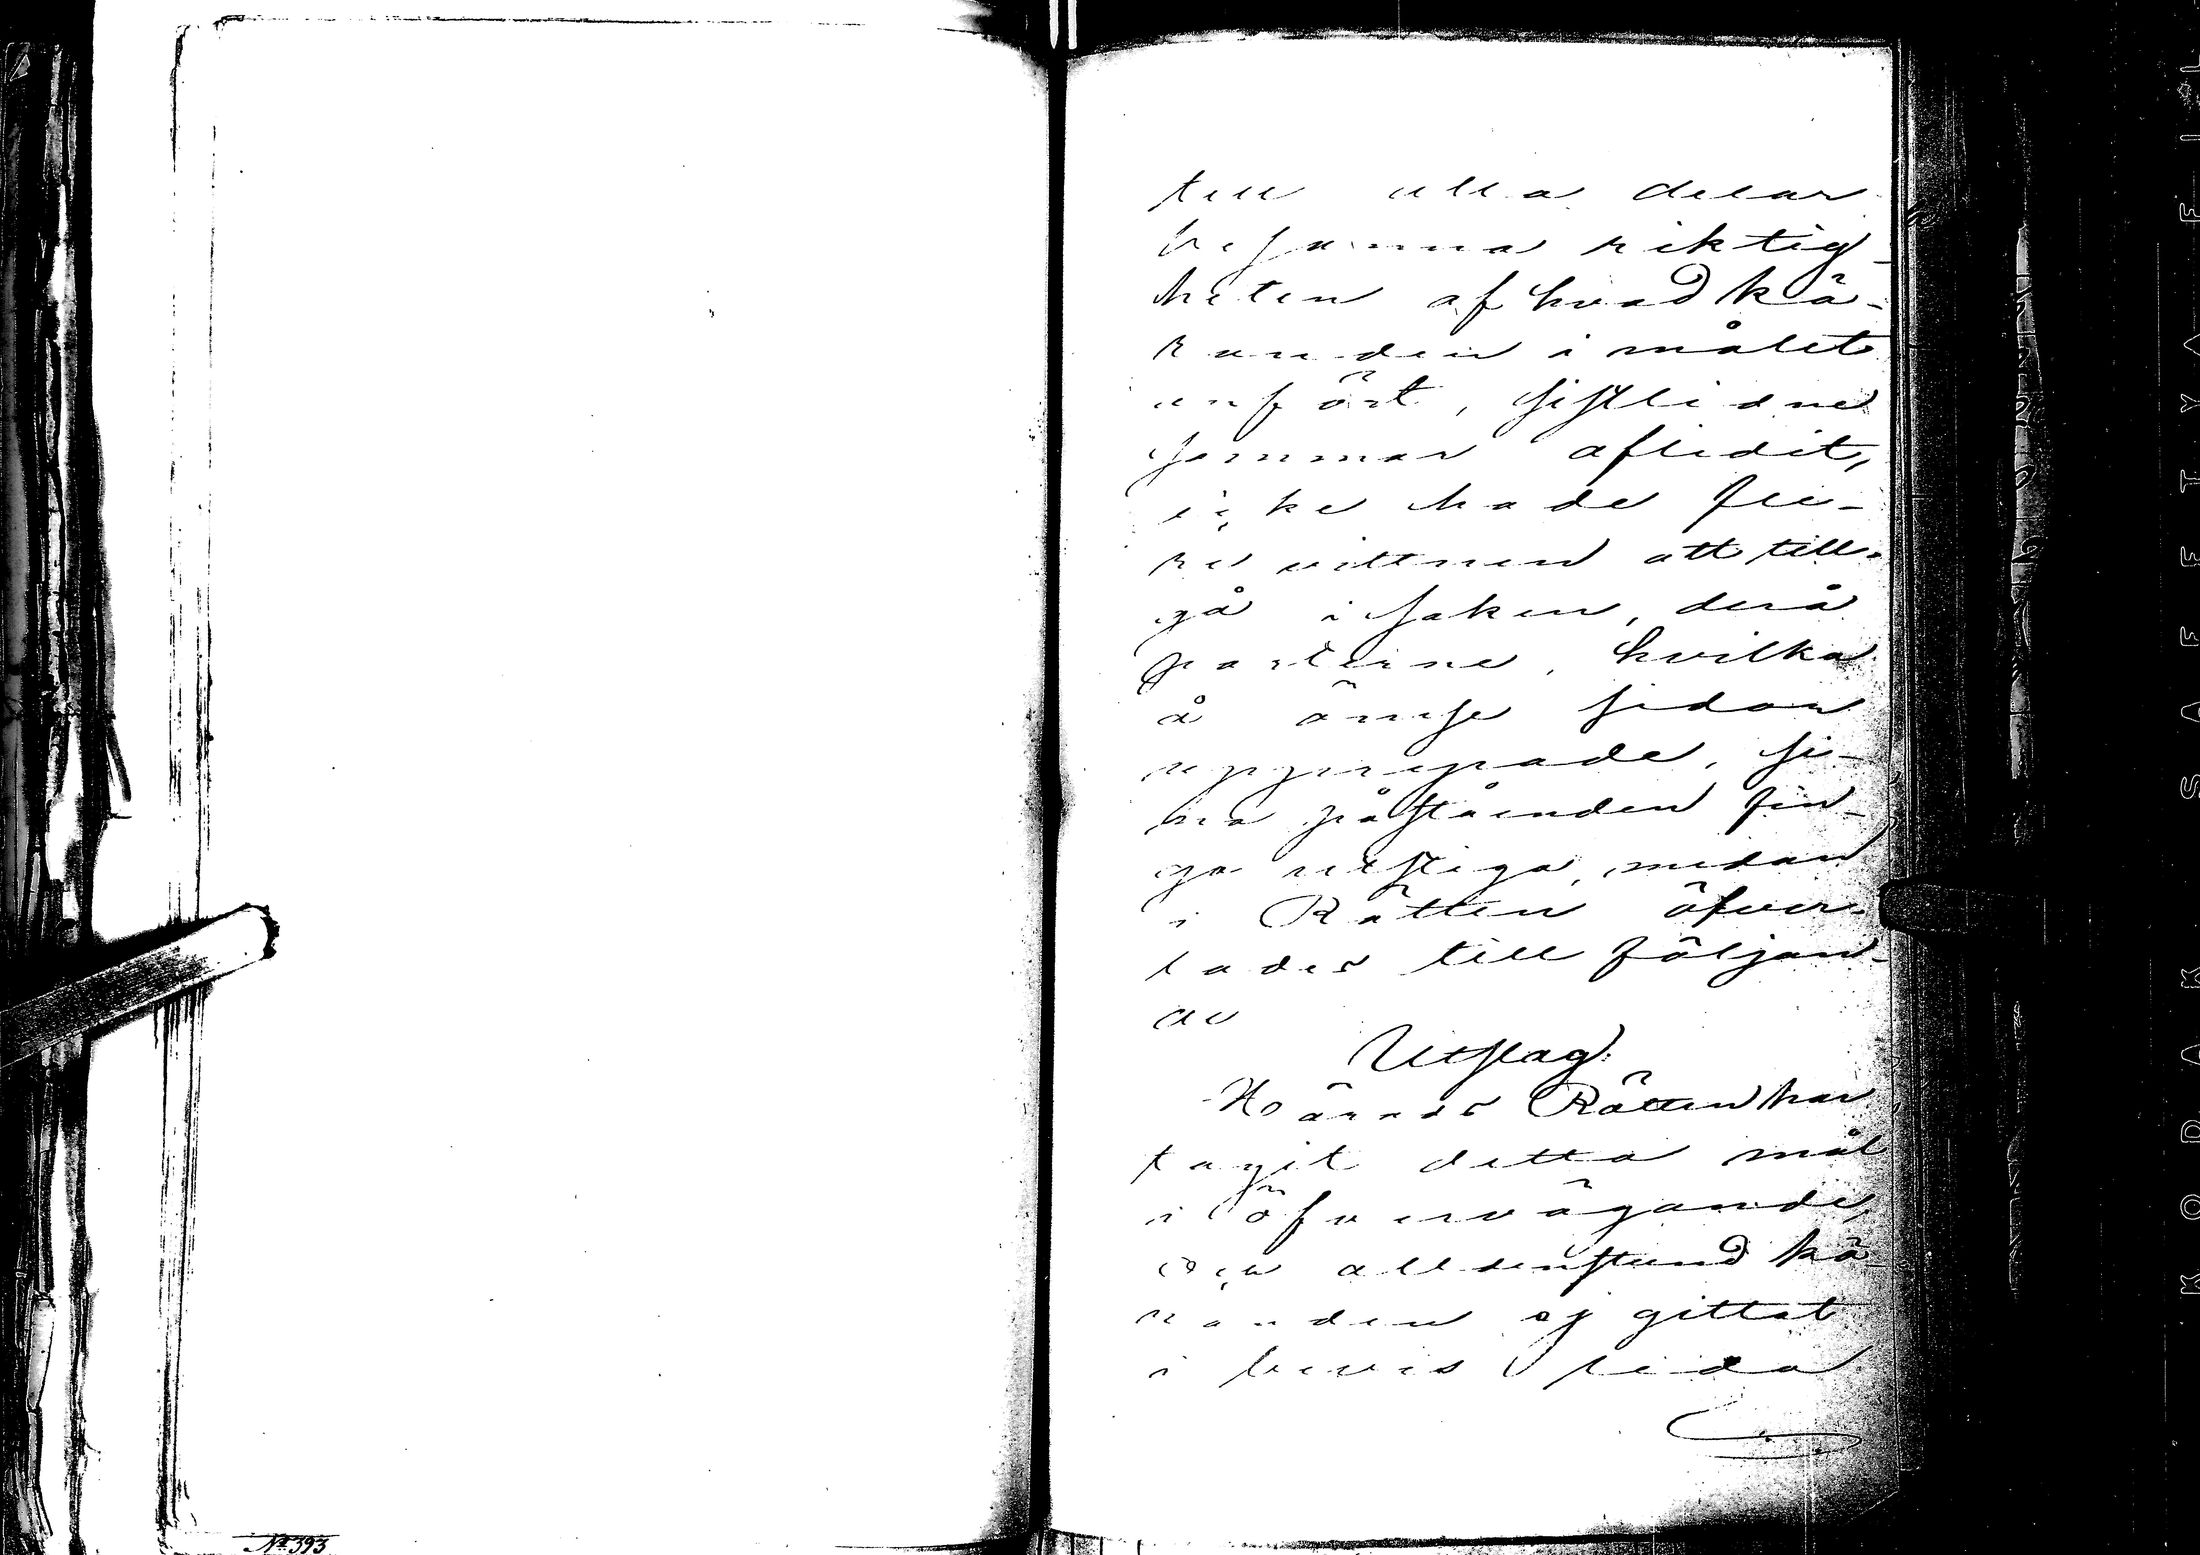 till alla delar
besanna riktig-
heten af hvad kä-
randen i målet
anfört, sistlidne
sommar aflidit,
icke hade fle-
re vittnen att till-
gå i saken, derå
parterne, hvilka
å ömse sidor
upprepade, si-
na påståenden fin-
go utstiga, medan
i Rätten öfver-
lades till följan-
de
Utslag:
Härads Rätten har
tagit detta mål
i öfvervägande,
och alldenstund kä-
randen ej gittat
i bevis leda
No 393.
KODAK SAFETY FILM